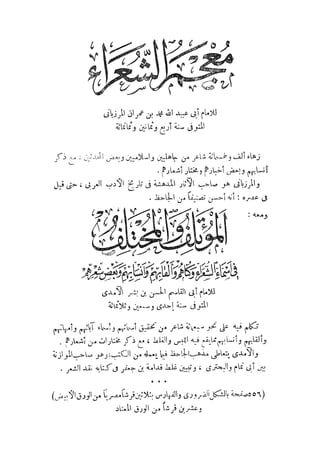 معجم الشعراء
للامام أبى عبيد الله محمد بن عمران المرزبانى
المتوفى سنة أربع وثمانين وثمانمائة
زهاء ألف وخمسمائة شاعر من جاهليين واسلاميين وبعض المحدثين ، مع ذكر
أنسابهم وبعض أخبارهم ومختار أشعارهم .
والمرزبانى هو صاحب الآثار المدهشة فى تاريخ الأدب العربى ، حتى قيل
فى عصره : أنه أحسن تصنيفاً من الجاحظ .
ومعه :
المؤتلف والمختلف
فى أسماء الشعراء وكناهم وألقابهم وأنسابهم وبعض شعرهم
للامام أبى القاسم الحسن بن بشر الآمدى
المتوفى سنة إحدى وسبعين وثلاثمائة
تكلم فيه على نحو سبعمائة شاعر من تحقيق أسمائهم وأسماء آبائهم وأمهاتهم
وألقابهم وأنسابهم مما يقع فيه اللبس والغلط ، مع ذكر مختارات من أشعارهم .
والآمدى يتعاطى مذهب الجاحظ فيما يعمله من الكتب : وهو صاحب الموازنة
بين أبى تمام والبحترى ، وتبيين غلط قدامة بن جعفر فى كتابه نقد الشعر .
• • •
(٥٥٦ صفحة بالشكل الضرورى والفهارس بثلاثين قرشاً مصرياً من الورق الأبيض)
وعشرين قرشاً من الورق المعتاد